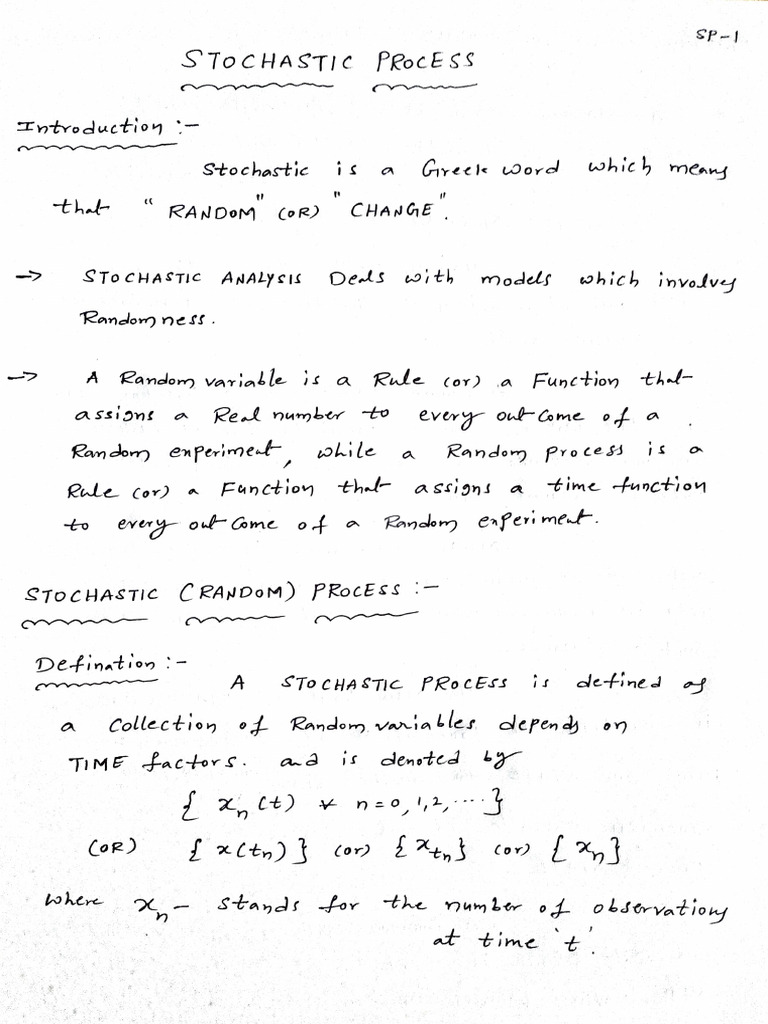 SP-1
STOCHASTIC PROCESS
Introduction :-
Stochastic is a Greek word which means
that "RANDOM" (OR) "CHANGE".
-> STOCHASTIC ANALYSIS Deals with models which involves
Randomness.
-> A Random variable is a Rule (or) a Function that
assigns a Real number to every out come of a
Random experiment, while a Random process is a
Rule (or) a Function that assigns a time function
to every out come of a Random experiment.
STOCHASTIC (RANDOM) PROCESS :-
Defination :-
A STOCHASTIC PROCESS is defined as
a Collection of Random variables depends on
TIME factors. and is denoted by
{ x_n (t) ∀ n = 0, 1, 2, .... }
(OR) { x(t_n) } (or) { x_{t_n} } (or) { x_n }
where x_n - stands for the number of observations
at time 't'.